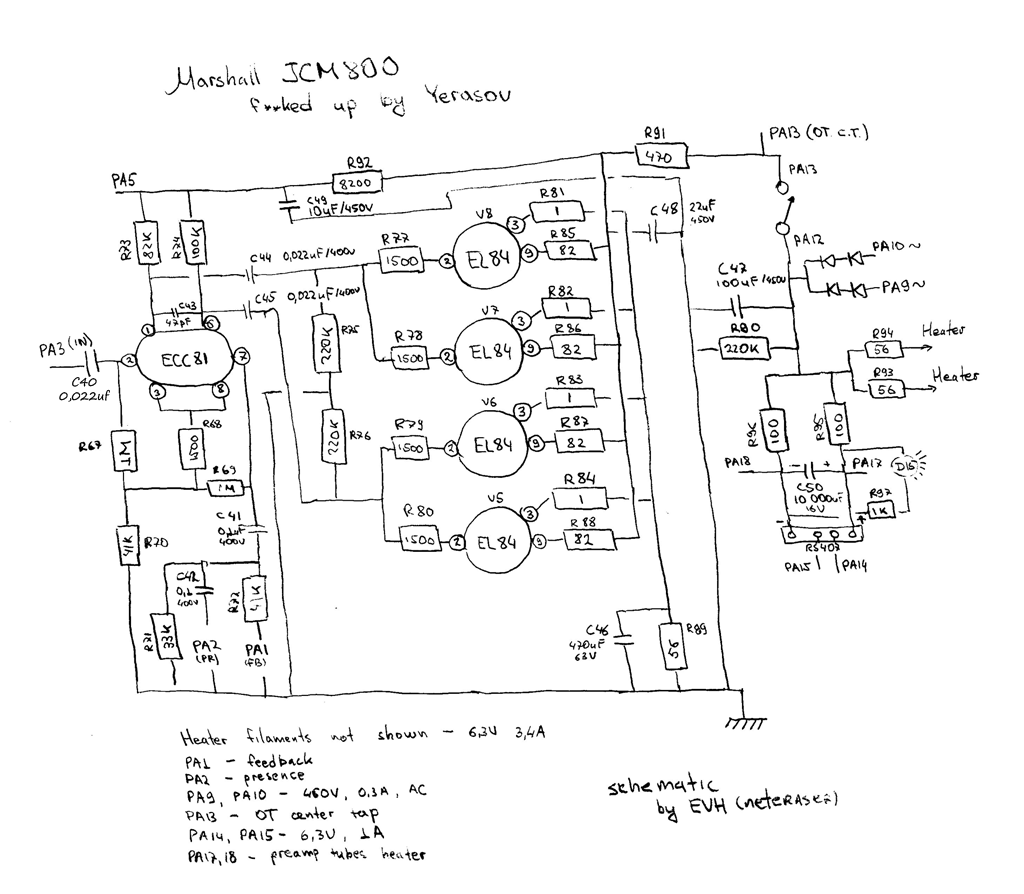 Marshall JCM800
f**ked up by Yerasov
PA5
R92
8200
R91
470
PA13 (OT. C.T.)
PA13
PA12
C49
10uF/450V
R73
82K
R74
100K
C44 0,022uF/400V
C45 0,022uF/400V
C43
47pF
R77
1500
V8
EL84
2
3
9
R81
1
R85
82
C48
22uF
450V
PA10~
PA9~
C47
100uF/450V
R90
220K
R75
220K
R78
1500
V7
EL84
2
3
9
R82
1
R86
82
PA3 (IN)
C40
0,022uF
1
6
2
ECC81
7
3
8
R94
56
Heater
R93
56
Heater
R68
1500
R67
1M
R69
1M
R76
220K
R79
1500
V6
EL84
2
3
9
R83
1
R87
82
R96
100
R95
100
PA18
- +
PA17
D15
C50
10 000uF
16V
R97
1K
- +
RS407
PA15
PA14
R80
1500
V5
EL84
2
3
9
R84
1
R88
82
C41
0,1uF
400V
R70
41K
C42
0,1
400V
R72
41K
R71
33K
PA2
(PR)
PA1
(FB)
C46
470uF
63V
R89
56
Heater filaments not shown - 6,3V 3,4A
PA1 - feedback
PA2 - presence
PA9, PA10 - 460V, 0.3A, AC
PA13 - OT center tap
PA14, PA15 - 6,3V, 1A
PA17,18 - preamp tubes heater
schematic
by EVH (neteraser)